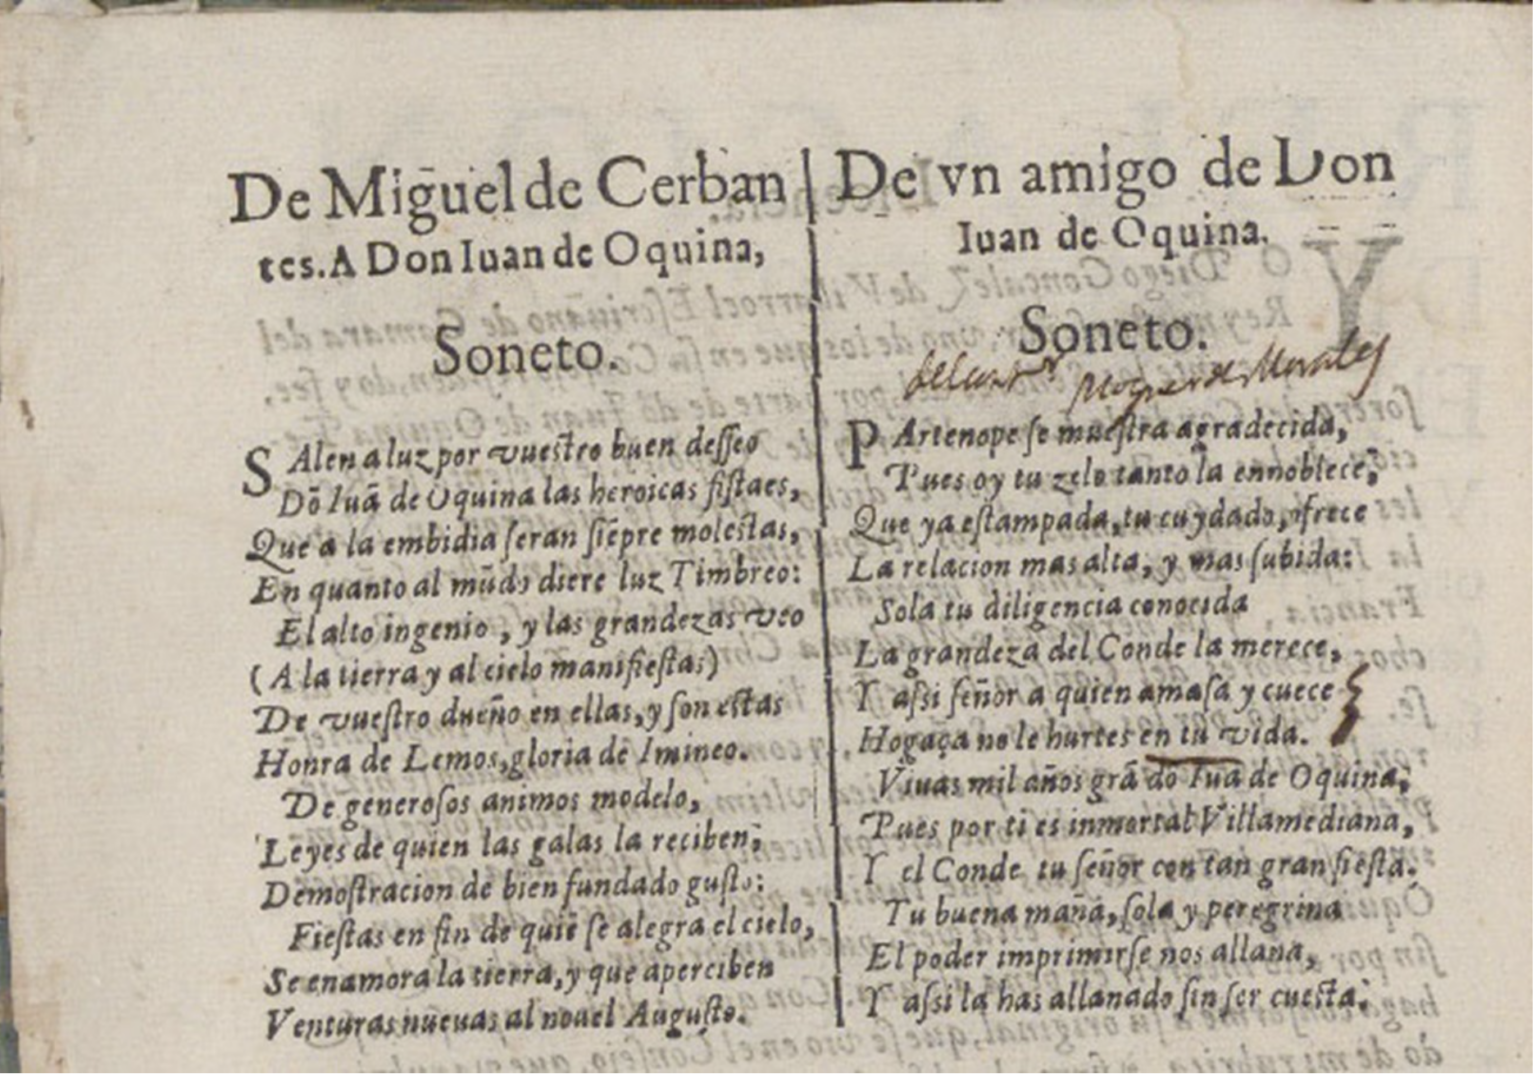 De Miguel de Cerban
tes. A Don Iuan de Oquina,
Soneto.
SAlen a luz por vuestro buen desseo
Dō Iuā de Oquina las heroicas fistaes,
Que a la embidia seran siēpre molestas,
En quanto al mūdo diere luz Timbreo:
El alto ingenio, y las grandezas veo
(A la tierra y al cielo manifiestas)
De vuestro dueño en ellas, y son estas
Honra de Lemos, gloria de Imineo.
De generosos animos modelo,
Leyes de quien las galas la reciben,
Demostracion de bien fundado gusto:
Fiestas en fin de quiē se alegra el cielo,
Se enamora la tierra, y que aperciben
Venturas nueuas al nouel Augusto.
De vn amigo de Don
Iuan de Oquina.
Soneto.
Morales
PArtenope se muestra agradecida,
Pues oy tu zelo tanto la ennoblece;
Que ya estampada, tu cuydado, ofrece
La relacion mas alta, y mas subida:
Sola tu diligencia conocida
La grandeza del Conde la merece,
Y assi señor a quien amasa y cuece
Hogaça no le hurtes en tu vida.
Viuas mil años grā dō Iuā de Oquina,
Pues por ti es inmortal Villamediana,
Y el Conde tu señor con tan gran fiesta.
Tu buena maña, sola y peregrina
El poder imprimirse nos allana,
Y assi la has allanado sin ser cuesta.